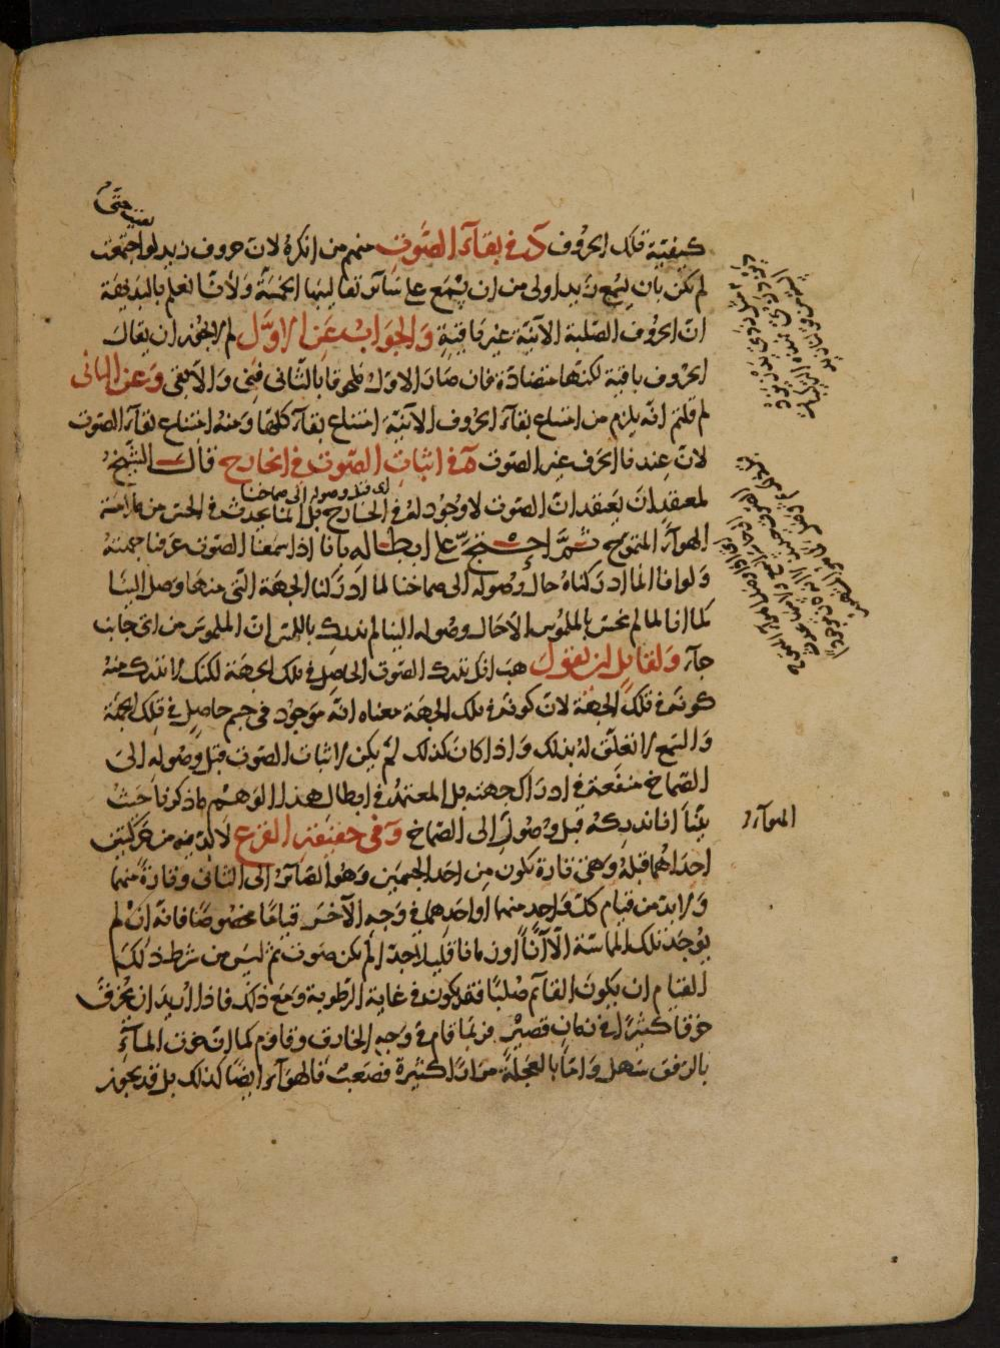 كيفية تلك الحروف د في بقاء الصوت منهم من انكره لان حروف زيد لو اجتمعت
لم يكن بان يسمع زيدا اولى من ان يسمع على سائر تقاليبها الخمسة ولانا نعلم بالبديهة
ان الحروف الصلبة الآنية غير باقية والجواب عن الاول لم لا يجوز ان يقال
الحروف باقية لكنها متضادة فان صار الاول طرقا بالثاني فني والا بقي وعن الثاني
لم قلتم انه يلزم من امتناع بقاء الحروف الآنية امتناع بقاء كلها ومنه امتناع بقاء الصوت
لان عندنا الحرف غير الصوت ه في اثبات الصوت في الخارج قال الشيخ
اى قبل وصوله الى صماخنا
لمعتقد ان يعتقد ان الصوت لا وجود له في الخارج بل انما يحدث في الحس من ملامسة
الهواء المتموج ثم احتج على ابطاله بانا اذا سمعنا الصوت عرفنا جهته
ولو انا انما ادركناه حال وصوله الى صماخنا لما ادركنا الجهة التي منها وصل الينا
كما انا لما لم نحس بالملموس الا حال وصوله الينا لم ندرك باللمس ان الملموس من اى جانب
جاء ولقائل ان يقول هب انك تدرك الصوت الحاصل في تلك الجهة لكنك لا تدرك منه
كونه في تلك الجهة لان كونه في تلك الجهة معناه انه موجود في جسم حاصل في تلك الجهة
والسمع لا تعلق له بذلك واذا كان كذلك لم يكن لاثبات الصوت قبل وصوله الى
الصماخ منفعة في ادراك جهته بل المعتمد في ابطال هذا الوهم ما ذكرنا حيث
بينا انا ندركه قبل وصوله الى الصماخ و في حقيقة القرع لا بد فيه من حركتين
احداهما قبله وهي تارة تكون من احد الجسمين وهو الصائر الى الثاني وتارة منهما
ولا بد من قيام كل واحد منهما او احدهما في وجه الآخر قياما مخصوصا فانه ان لم
يوجد تلك المماسة الا آنا او زمانا قليلا جدا لم يكن صوت ثم ليس من شرط ذلك
القيام ان يكون القائم صلبا فقد يكون في غاية الرطوبة ومع ذلك فاذا اريد ان يخرق
خرقا كثيرا في زمان قصير فربما قام في وجه الخارق وقاوم كما ان خرق الماء
بالرفق سهل واما بالعجلة مرارا كثيرة فصعب فالهواء ايضا كذلك بل قد يجوز